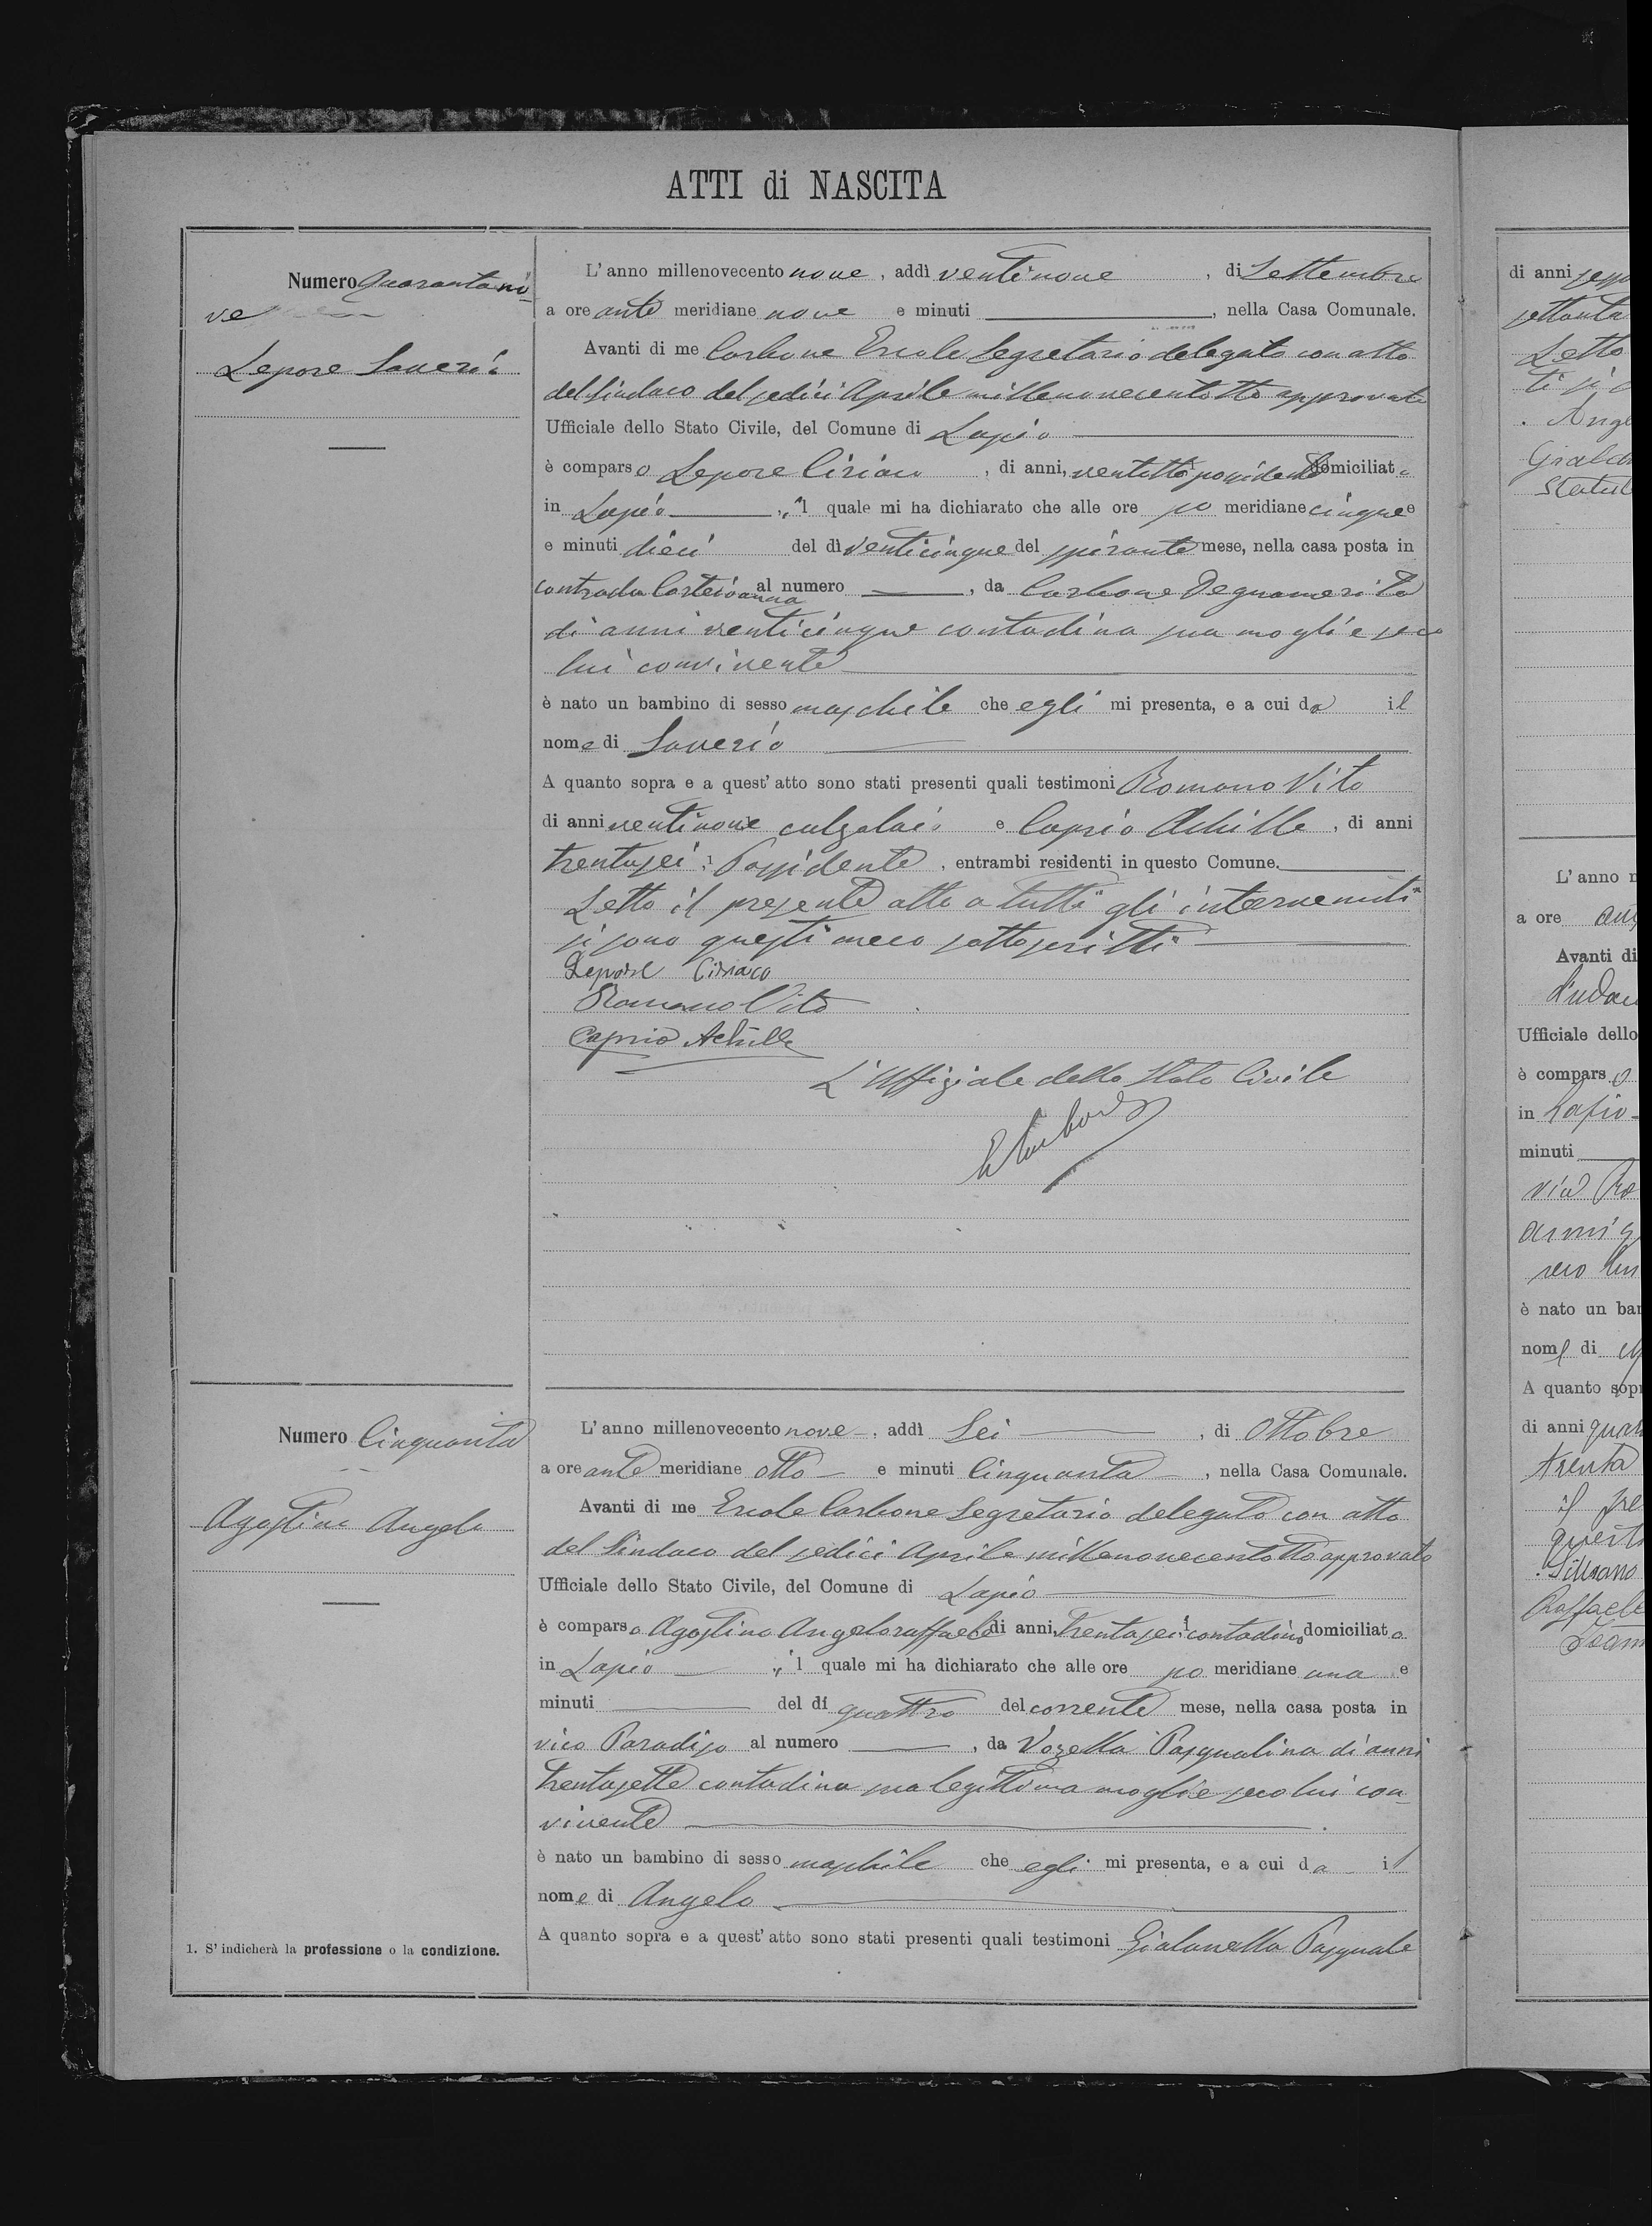 ATTI di NASCITA
Numero Quarantano-
ve
Lepore Saverio
L'anno millenovecento nove, addì ventinove, di Settembre
a ore ante meridiane nove e minuti, nella Casa Comunale.
Avanti di me Carbone Ercole Segretario delegato con atto
del Sindaco del sedici Aprile millenovecentotto approvato
Ufficiale dello Stato Civile, del Comune di Lapio
è comparso Lepore Ciriaco, di anni, ventotto possidente domiciliato
in Lapio, il quale mi ha dichiarato che alle ore po meridiane cinque e
e minuti dieci del dì venticinque del spirante mese, nella casa posta in
contrada al numero, da Carbone Degnamerita
di anni venticinque contadina sua moglie seco
lui convivente
è nato un bambino di sesso maschile che egli mi presenta, e a cui da il
nome di Saverio
A quanto sopra e a quest'atto sono stati presenti quali testimoni Romano Vito
di anni ventinove calzolaio e Caprio Achille, di anni
trentasei, Possidente, entrambi residenti in questo Comune.
Letto il presente atto a tutti gli intervenuti
si sono questi meco sottoscritti
Lepore Ciriaco
Romano Vito
Caprio Achille
L'Uffiziale dello Stato Civile
E Carbone
Numero Cinquanta
Agostino Angelo
L'anno millenovecento nove, addì Sei, di Ottobre
a ore ante meridiane otto e minuti Cinquanta, nella Casa Comunale.
Avanti di me Ercole Carbone Segretario delegato con atto
del Sindaco del sedici Aprile millenovecentotto approvato
Ufficiale dello Stato Civile, del Comune di Lapio
è comparso Agostino Angeloraffaele di anni, trentasei contadino domiciliato
in Lapio, il quale mi ha dichiarato che alle ore po meridiane una e
minuti del dí quattro del corrente mese, nella casa posta in
vico Paradiso al numero, da Vozella Pasqualina di anni
trentasette contadina sua legittima moglie seco lui con-
vivente
è nato un bambino di sesso maschile che egli mi presenta, e a cui da il
nome di Angelo
A quanto sopra e a quest'atto sono stati presenti quali testimoni Gialanella Pasquale
1. S'indicherà la professione o la condizione.
di anni
settanta
Letto
Ange
L'anno
a ore
Avanti di
Ufficiale dello
è comparso
in Lapio
minuti
via
è nato un
nome di
A quanto
di anni
trenta
Raffaele